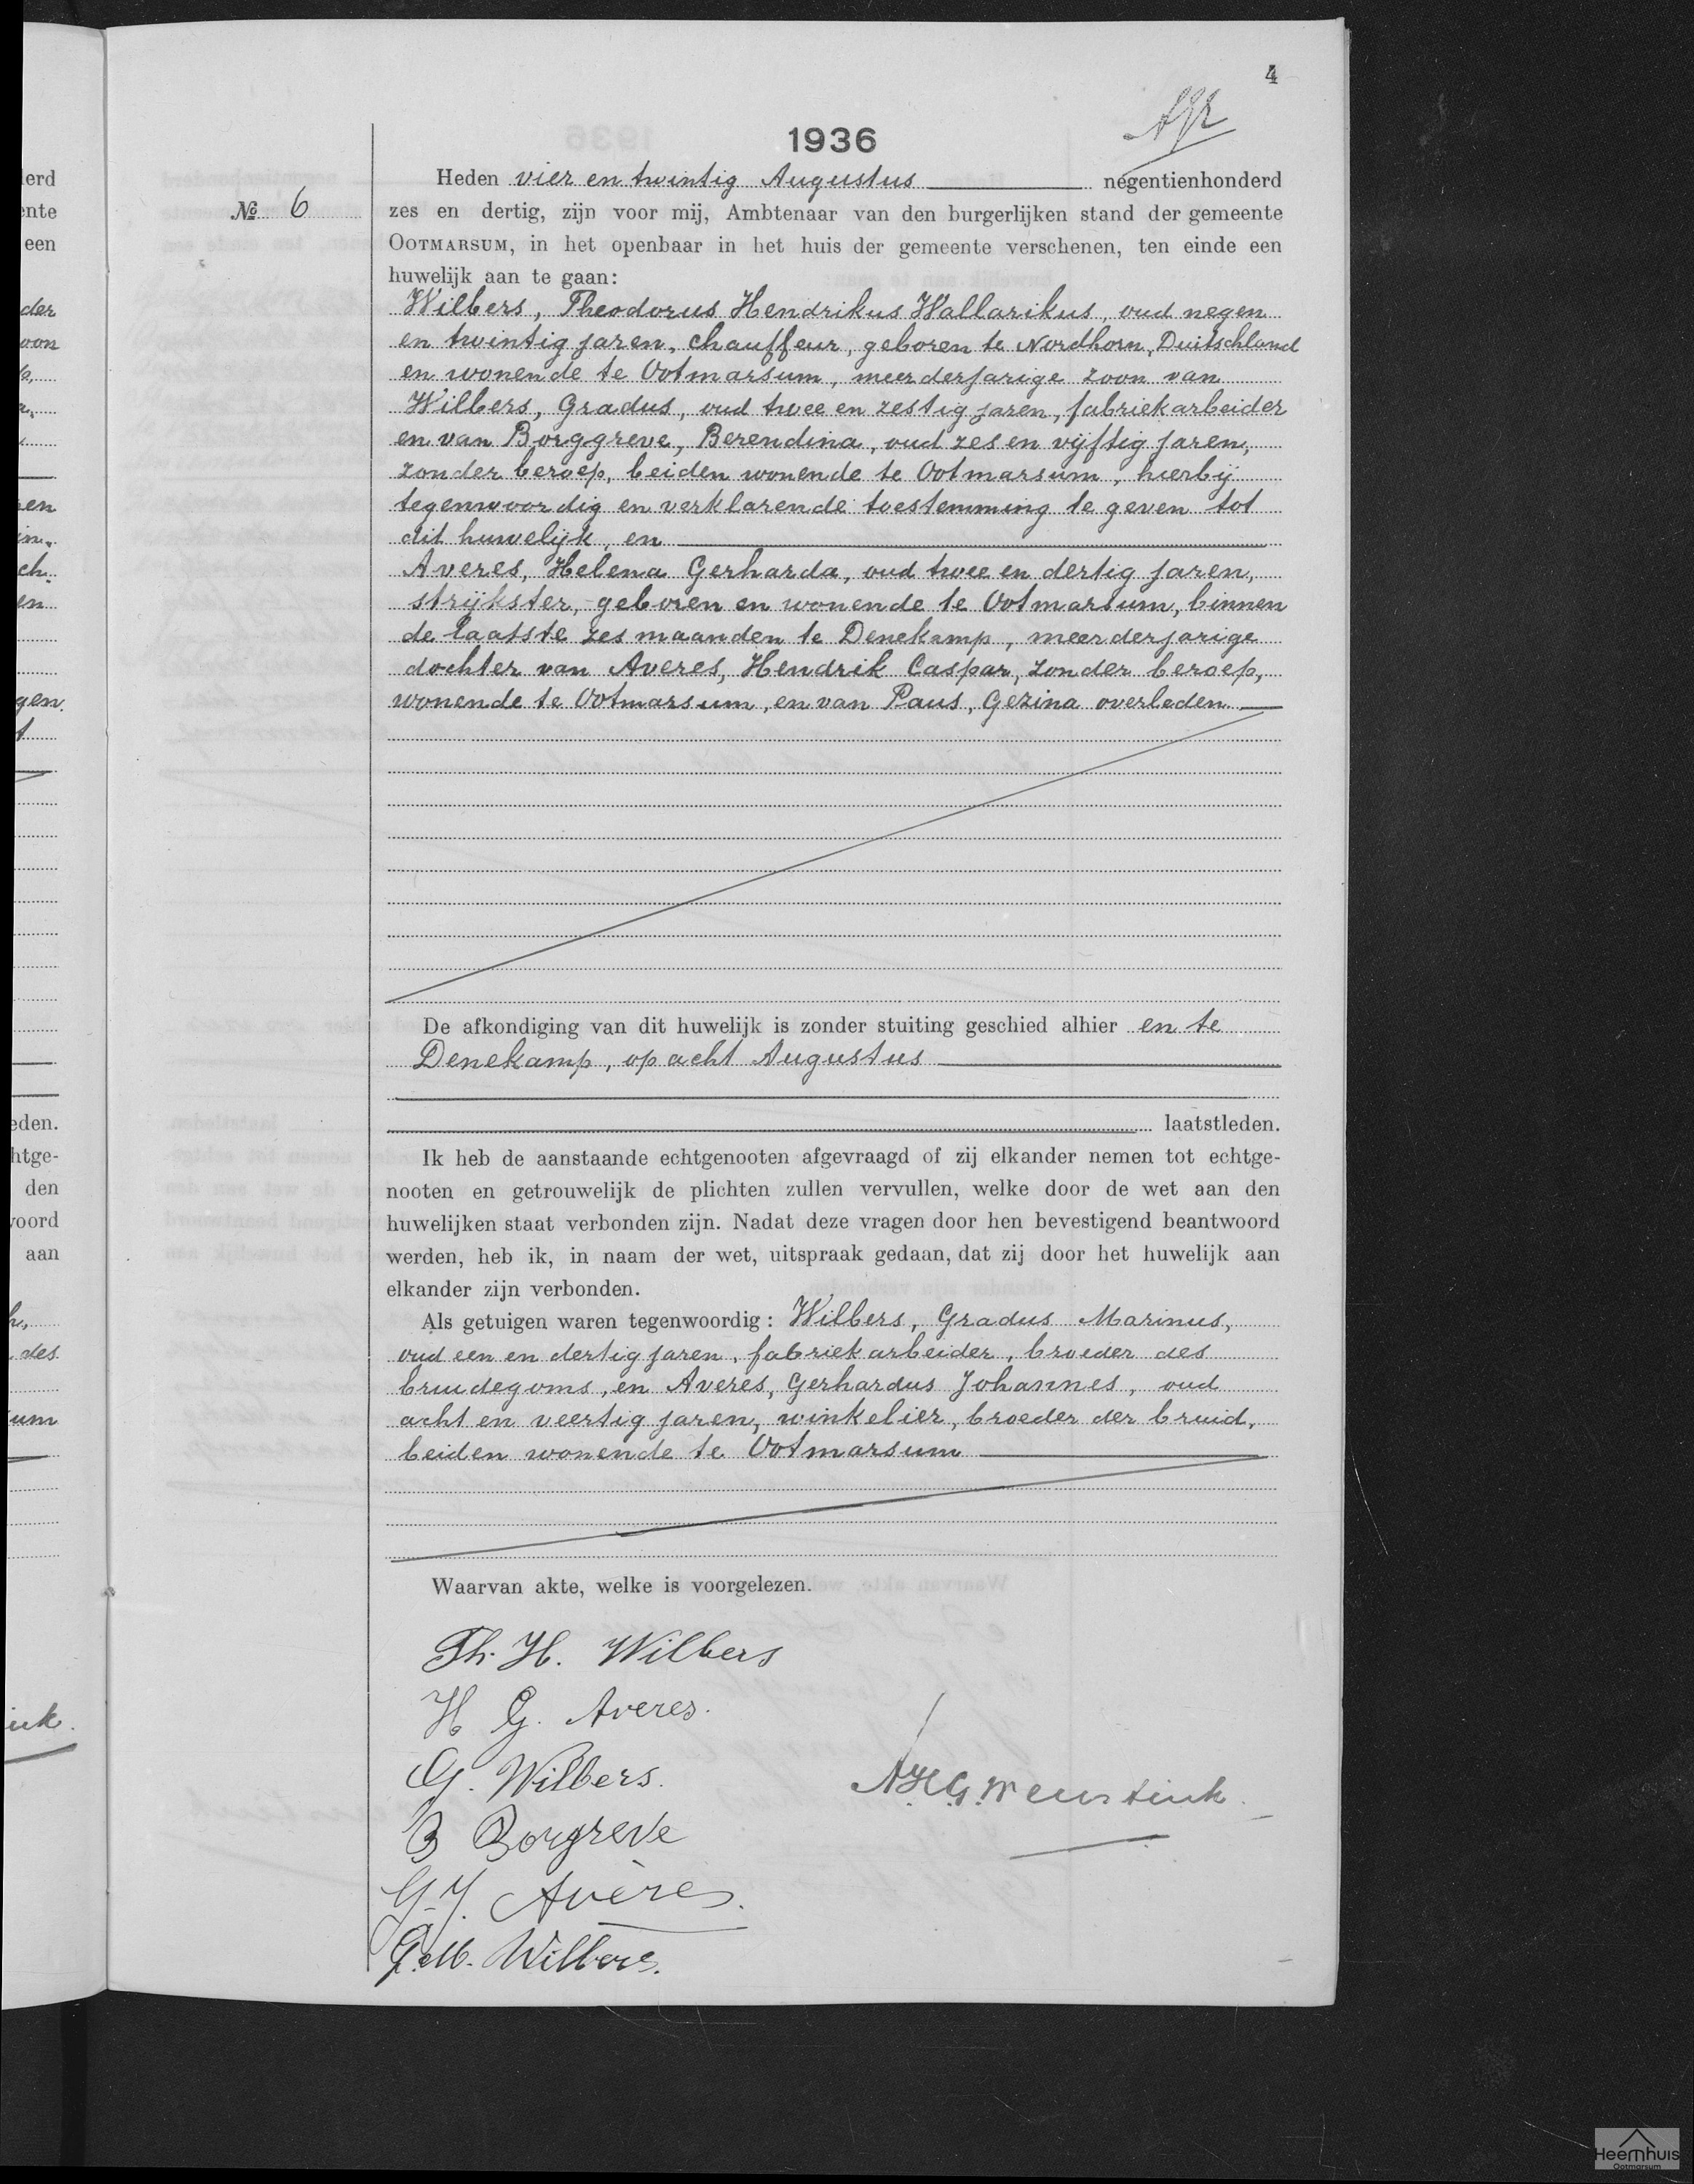 4
1936
Heden vier en twintig Augustus negentienhonderd
№ 6
zes en dertig, zijn voor mij, Ambtenaar van den burgerlijken stand der gemeente
OOTMARSUM, in het openbaar in het huis der gemeente verschenen, ten einde een
huwelijk aan te gaan:
Wilbers, Theodorus Hendrikus Wallarikus, oud negen
en twintig jaren, chauffeur, geboren te Nordhorn, Duitschland
en wonende te Ootmarsum, meerderjarige zoon van
Wilbers, Gradus, oud twee en zestig jaren, fabriekarbeider
en van Borggreve, Berendina, oud zes en vijftig jaren,
zonder beroep, beiden wonende te Ootmarsum, hierbij
tegenwoordig en verklarende toestemming te geven tot
dit huwelijk, en
Averes, Helena Gerharda, oud twee en dertig jaren,
strijkster, geboren en wonende te Ootmarsum, binnen
de laatste zes maanden te Denekamp, meerderjarige
dochter van Averes, Hendrik Caspar, zonder beroep,
wonende te Ootmarsum, en van Paus, Gezina overleden
De afkondiging van dit huwelijk is zonder stuiting geschied alhier en te
Denekamp, op acht Augustus
laatstleden.
Ik heb de aanstaande echtgenooten afgevraagd of zij elkander nemen tot echtge-
nooten en getrouwelijk de plichten zullen vervullen, welke door de wet aan den
huwelijken staat verbonden zijn. Nadat deze vragen door hen bevestigend beantwoord
werden, heb ik, in naam der wet, uitspraak gedaan, dat zij door het huwelijk aan
elkander zijn verbonden.
Als getuigen waren tegenwoordig: Wilbers, Gradus Marinus,
oud een en dertig jaren, fabriekarbeider, broeder des
bruidegoms, en Averes, Gerhardus Johannes, oud
acht en veertig jaren, winkelier, broeder der bruid,
beiden wonende te Ootmarsum
Waarvan akte, welke is voorgelezen.
Th. H. Wilbers
H G. Averes.
G. Wilbers.
B Borgreve
G. J. Averes.
G. M. Wilbers.
Heemhuis
Ootmarsum